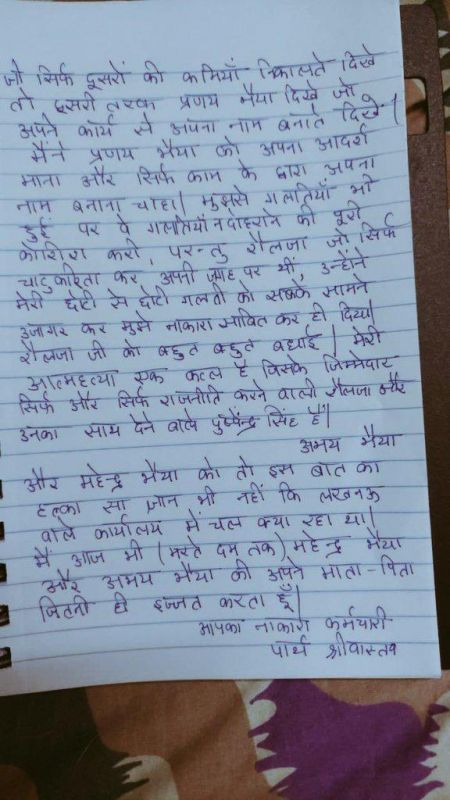 जो सिर्फ दूसरों की कमियाँ निकालते दिखे
तो दूसरी तरफ प्रणय भैया दिखे जो
अपने कार्य से अपना नाम बनाते दिखे।
मैंने प्रणय भैया को अपना आदर्श
माना और सिर्फ काम के द्वारा अपना
नाम बनाना चाहा। मुझसे गलतियाँ भी
हुईं पर वे गलतियाँ न दोहराने की पूरी
कोशिश करी, परन्तु शैलजा जो सिर्फ
चाटुकारिता कर अपनी जगह पर थीं, उन्होंने
मेरी छोटी से छोटी गलती को सबके सामने
उजागर कर मुझे नाकारा साबित कर ही दिया।
शैलजा जी को बहुत बहुत बधाई। मेरी
आत्महत्या एक कत्ल है जिसके जिम्मेदार
सिर्फ और सिर्फ राजनीति करने वाली शैलजा और
उनका साथ देने वाले पुष्पेन्द्र सिंह हैं।
अभय भैया
और महेन्द्र भैया को तो इस बात का
हल्का सा ज्ञान भी नहीं कि लखनऊ
वाले कार्यालय में चल क्या रहा था।
मैं आज भी (मरते दम तक) महेन्द्र भैया
और अभय भैया की अपने माता-पिता
जितनी ही इज्जत करता हूँ।
आपका नाकारा कर्मचारी
पार्थ श्रीवास्तव